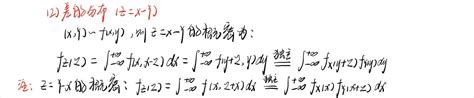 (2) 差的分布 (Z=X-Y)
(X,Y)~f(x,y), 则 Z=X-Y 的概密为:
f_Z(z) = ∫_{-∞}^{+∞} f(x,x-z)dx = ∫_{-∞}^{+∞} f(y+z,y)dy 独立= ∫_{-∞}^{+∞} f_X(y+z)f_Y(y)dy
注: Z=Y-X的概密: f_Z(z) = ∫_{-∞}^{+∞} f(x,z+x)dx 独立= ∫_{-∞}^{+∞} f_X(x)f_Y(x+z)dx